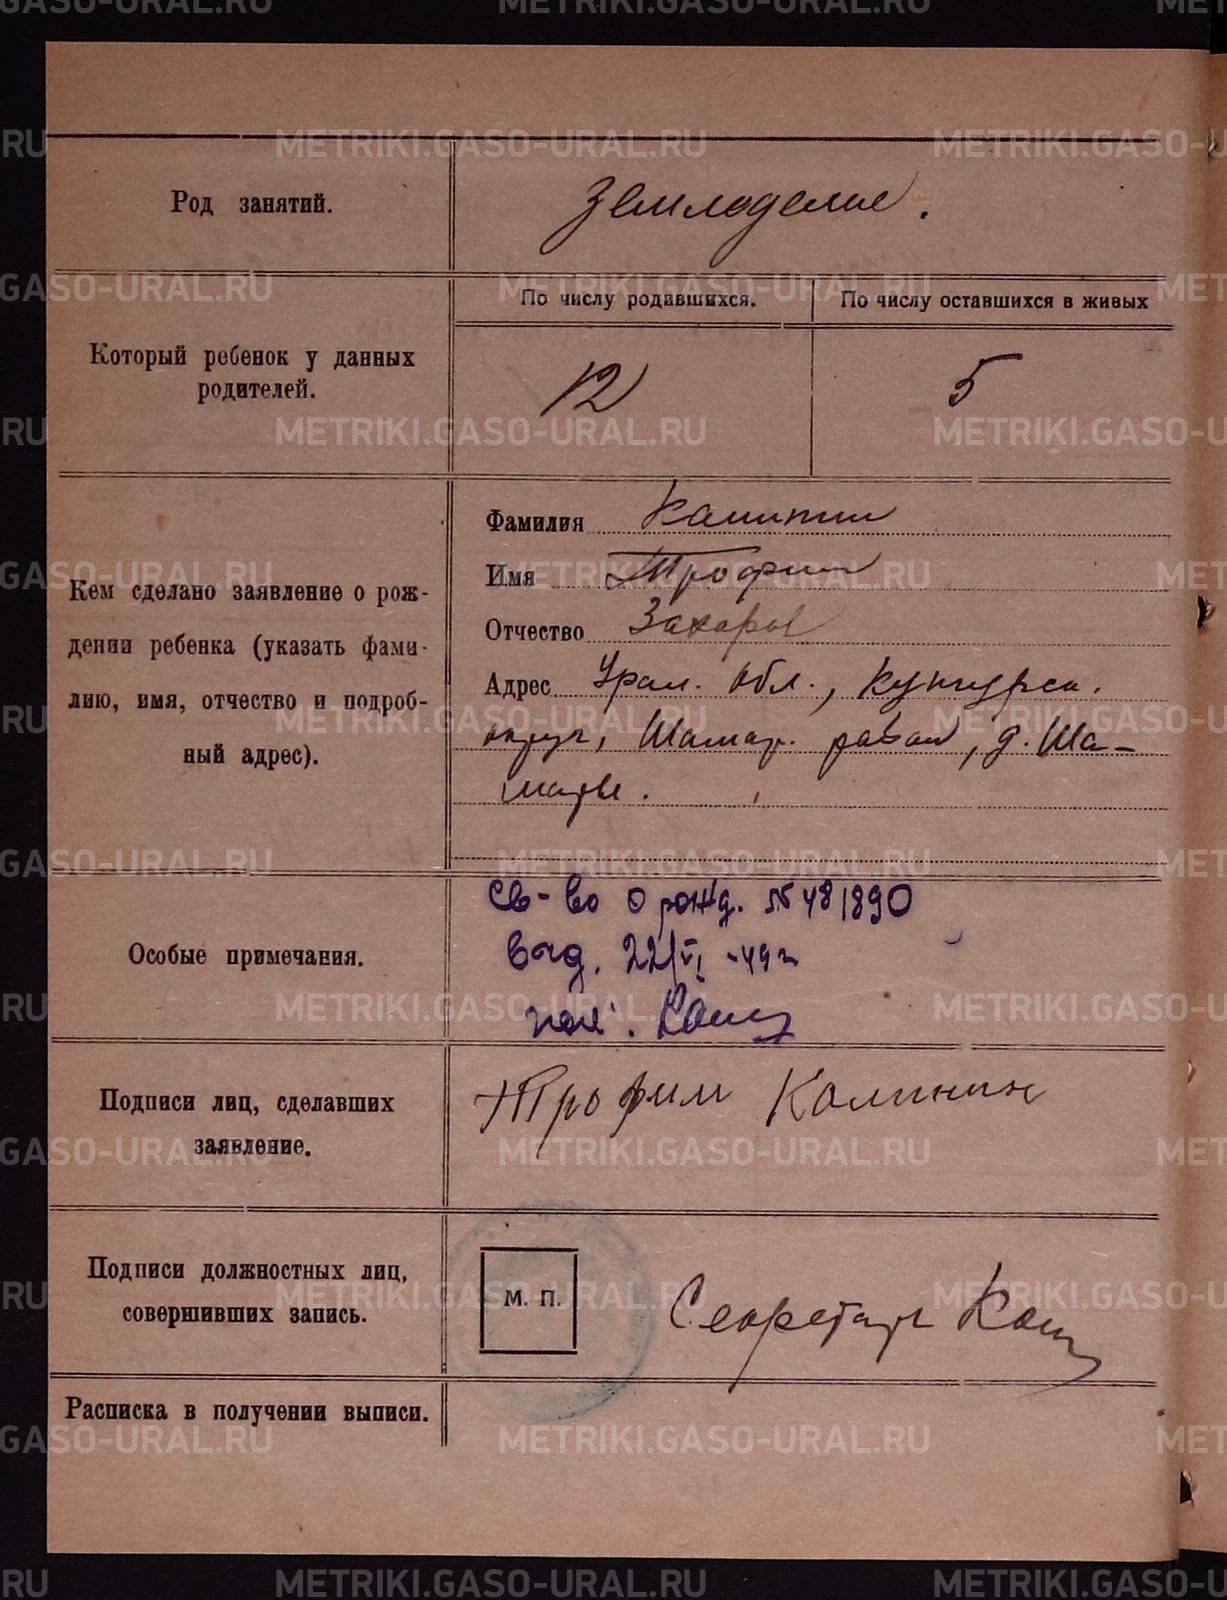 Род занятий.
Земледелие.
Который ребенок у данных
родителей.
По числу родившихся.
По числу оставшихся в живых
12
5
Кем сделано заявление о рож-
дении ребенка (указать фами-
лию, имя, отчество и подроб-
ный адрес).
Фамилия Калинин
Имя Трофим
Отчество Захаров
Адрес Урал. обл., Кунгурск.
округ, Шамар. район, д. Ша-
мары.
Особые примечания.
Св-во о рожд. № 481890
выд. 22/VI -49 г
Подписи лиц, сделавших
заявление.
Трофим Калинин
Подписи должностных лиц,
совершивших запись.
М. П.
Секретарь
Расписка в получении выписи.
METRIKI.GASO-URAL.RU